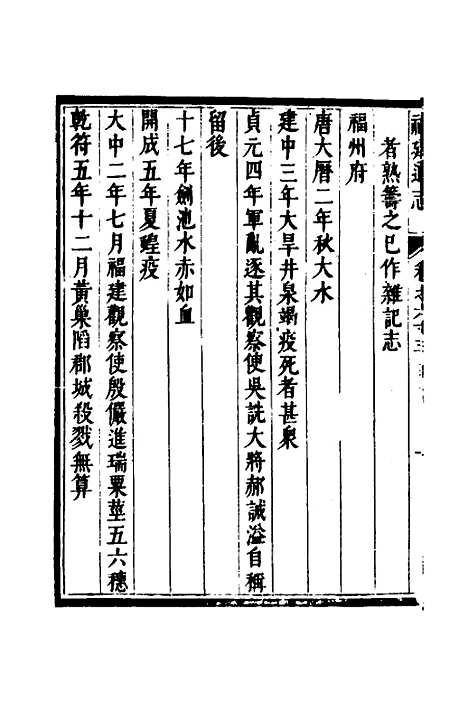 福建通志
者熟籌之已作雜記志
福州府
唐大曆二年秋大水
建中三年大旱井泉竭疫死者甚衆
貞元四年軍亂逐其觀察使吳詵大將郝誡溢自稱
留後
十七年劍池水赤如血
開成五年夏蝗疫
大中二年七月福建觀察使殷儼進瑞粟莖五六穗
乾符五年十二月黃巢陷郡城殺戮無算